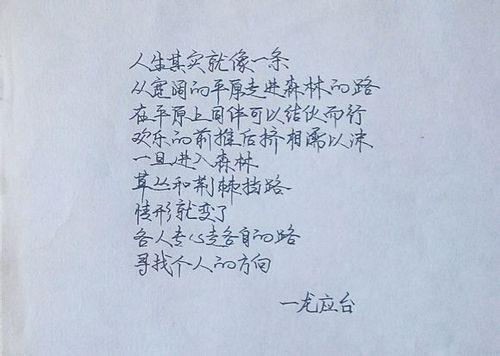 人生其实就像一条
从宽阔的平原走进森林的路
在平原上同伴可以结伙而行
欢乐的前推后挤相濡以沫
一旦进入森林
草丛和荆棘挡路
情形就变了
各人专心走各自的路
寻找个人的方向
一龙应台